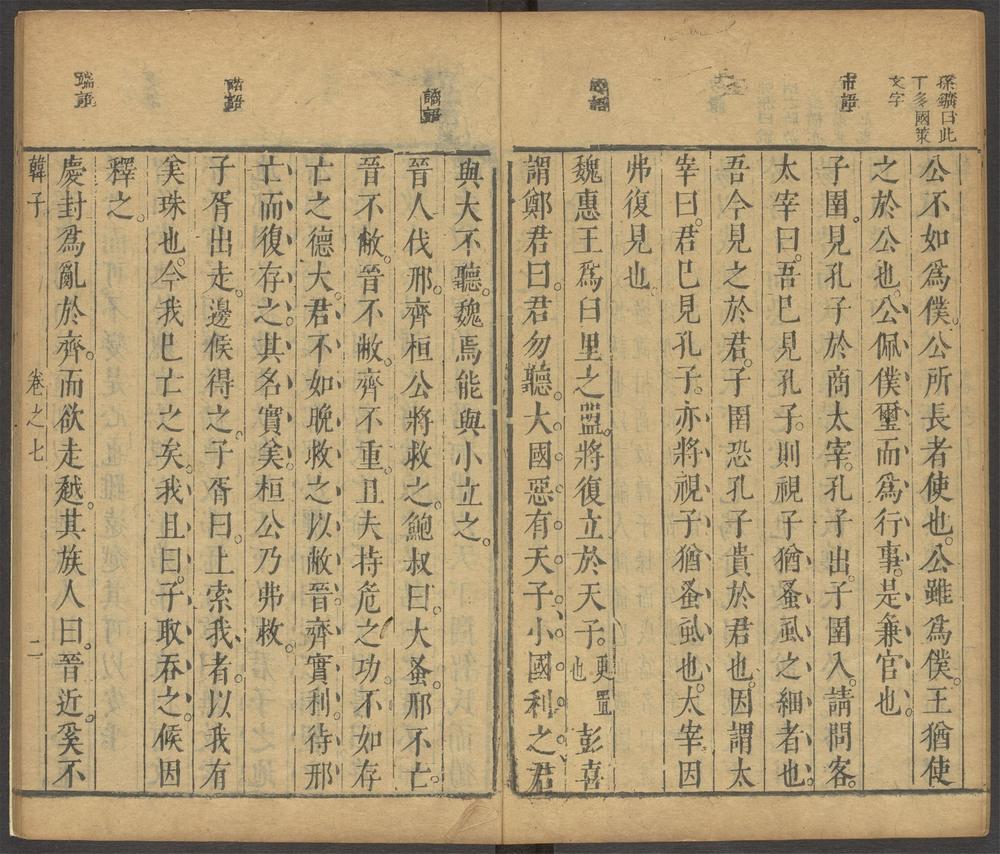 孫鑛曰此
丁多國策
文字
市語
國語
公不如爲僕公所長者使也公雖爲僕王猶使
之於公也公佩僕璽而爲行事是兼官也
子圉見孔子於商太宰孔子出子圉入請問客
太宰曰吾已見孔子則視子猶蚤虱之細者也
吾今見之於君子圉恐孔子貴於君也因謂太
宰曰君已見孔子亦將視子猶蚤虱也太宰因
弗復見也
魏惠王爲臼里之盟將復立於天子更置也彭喜
謂鄭君曰君勿聽大國惡有天子小國利之君
譎語
諧語
瑞語
與大不聽魏焉能與小立之
晉人伐邢齊桓公將救之鮑叔曰大蚤邢不亡
晉不敝晉不敝齊不重且夫持危之功不如存
亡之德大君不如晚救之以敝晉齊實利待邢
亡而復存之其名實矣桓公乃弗救
子胥出走邊候得之子胥曰上索我者以我有
美珠也今我已亡之矣我且曰子取吞之候因
釋之
慶封爲亂於齊而欲走越其族人曰晉近奚不
韓子 卷之七 二